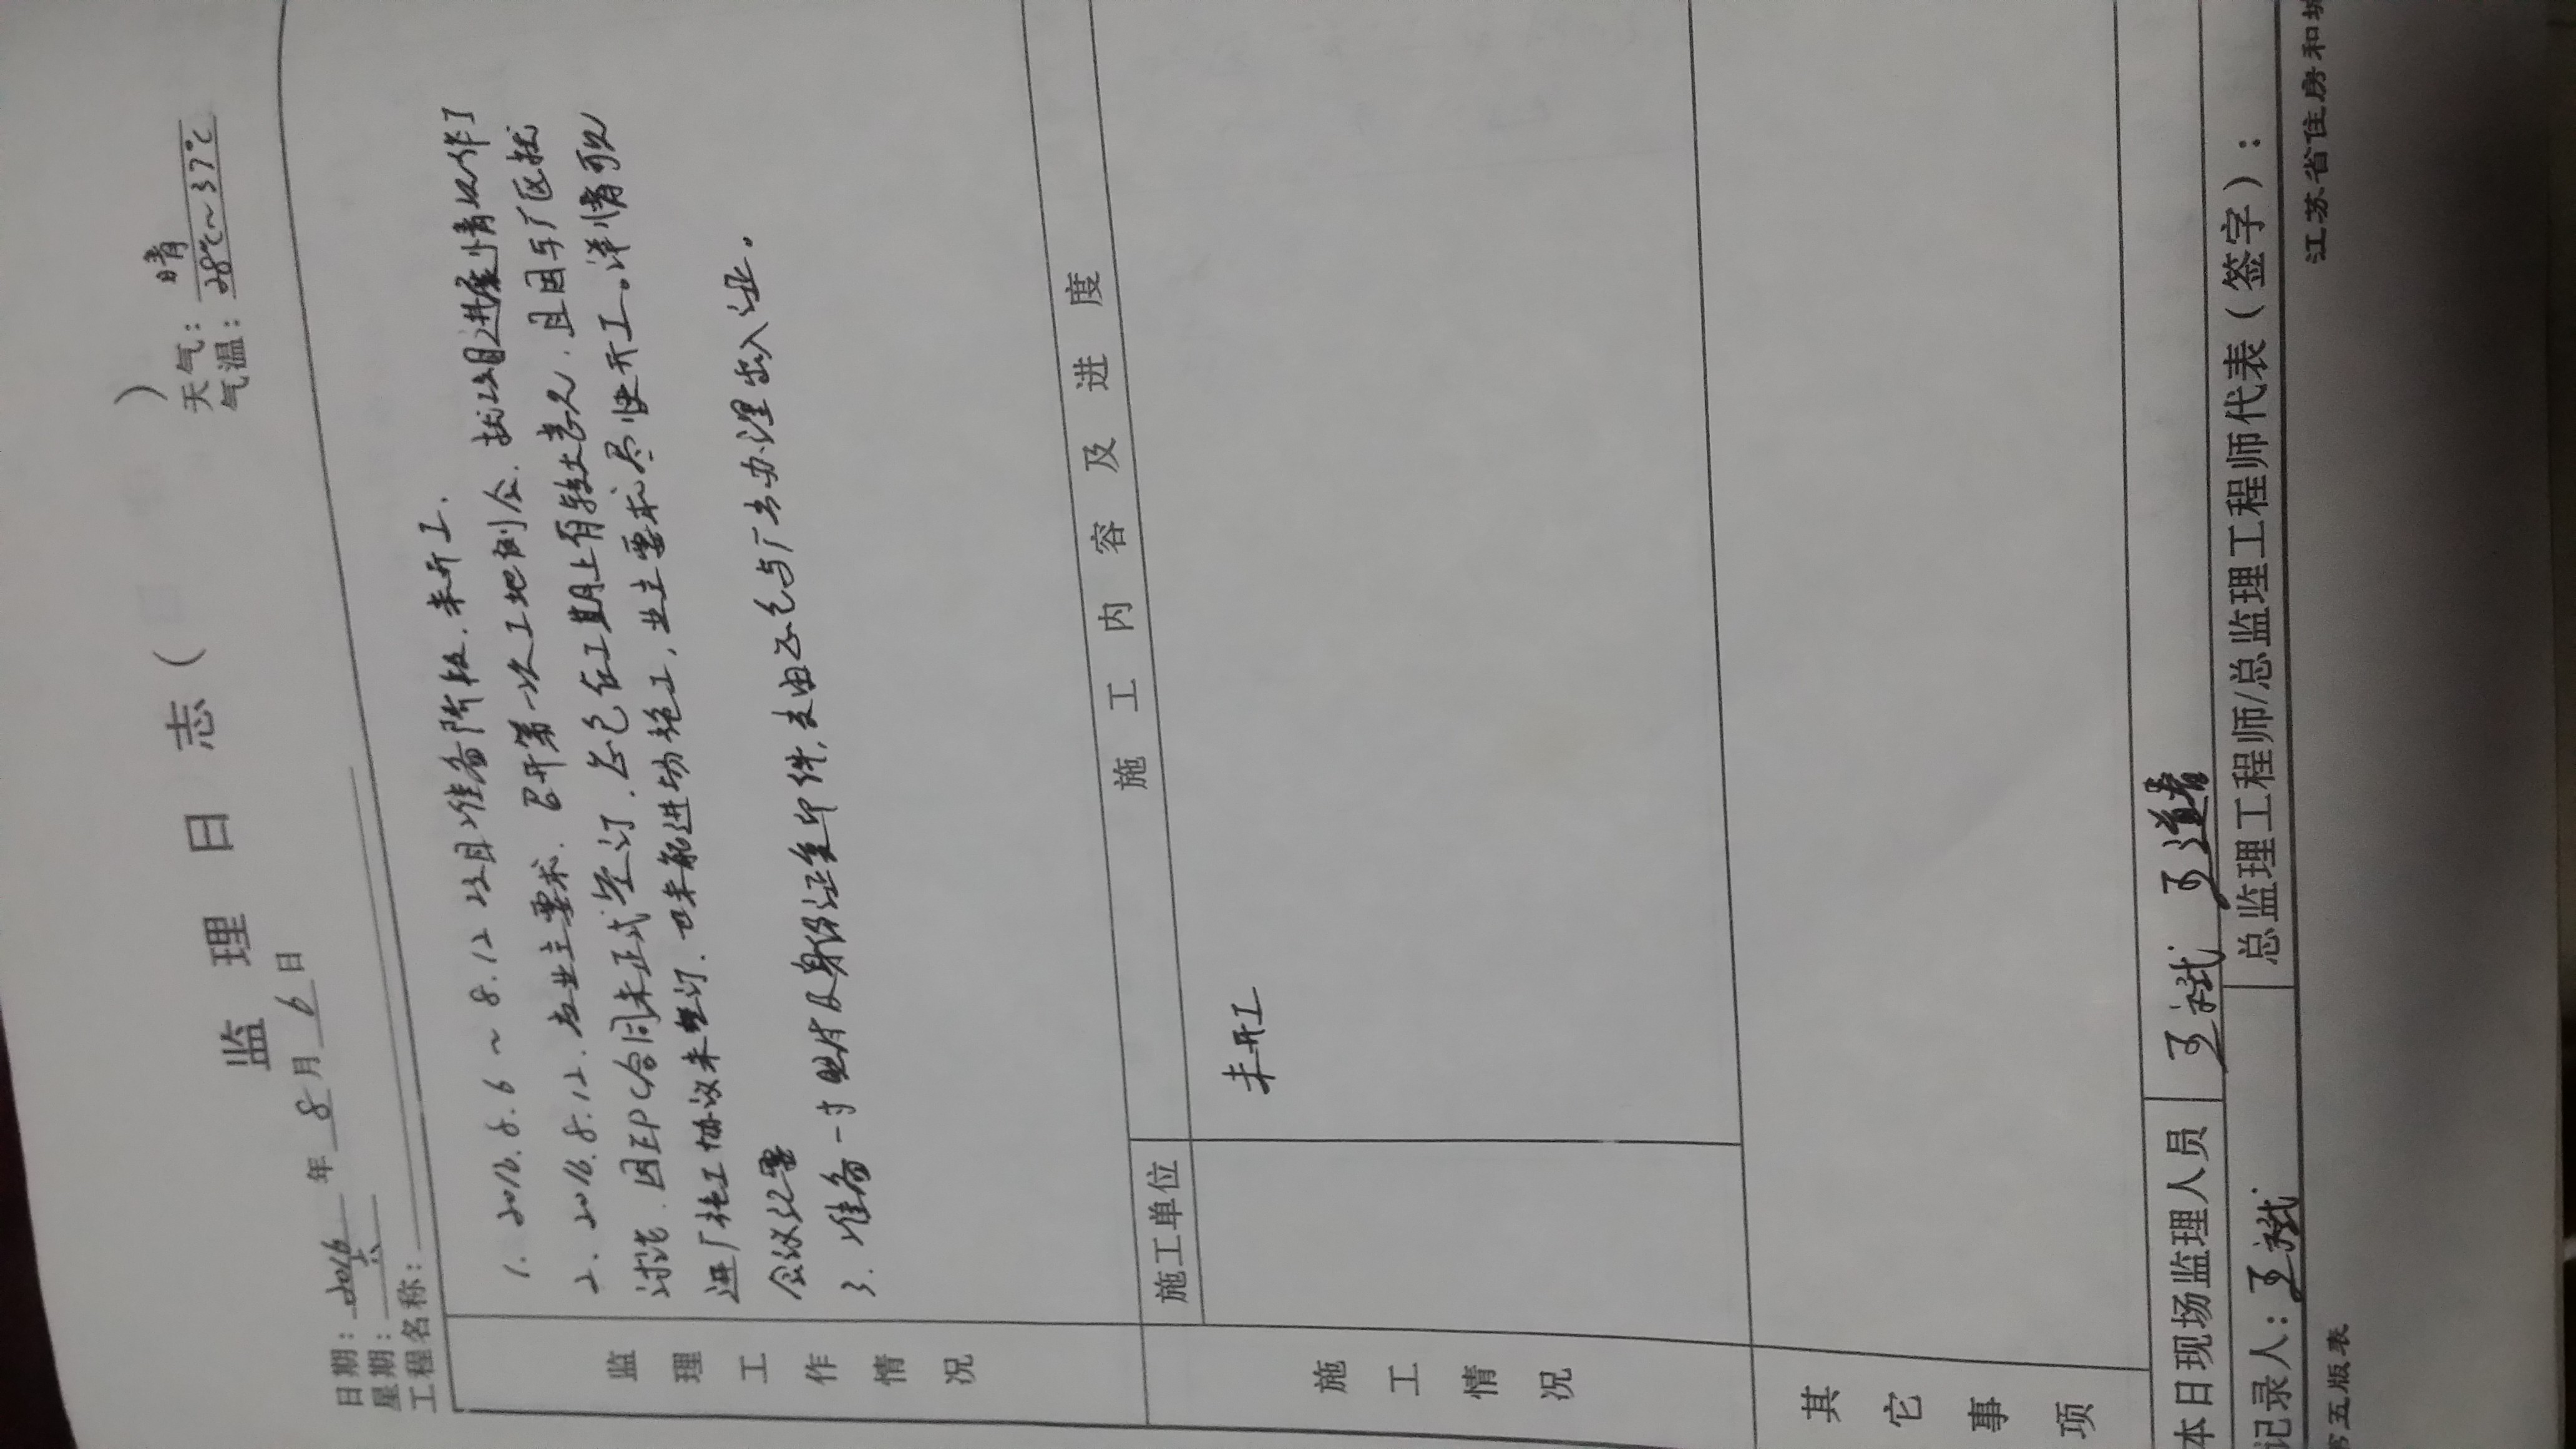 监 理 日 志 （ ）
日期：2016 年 8 月 6 日 天气：晴
星期：六 气温：28℃～37℃
工程名称：
监理工作情况
1. 2016.8.6～8.12 项目准备阶段.未开工.
2. 2016.8.12.应业主要求.召开第一次工地例会.就项目进展情况作了
讨论.因EPC合同未正式签订.总包在工期上有较大意见.且因与厂区就
进厂施工协议未签订.也未能进场施工，业主要求尽快开工。详情可见
会议纪要
3.准备一寸照片及身份证复印件.交由总包与厂去办理出入证。
施工情况
施工单位 施工内容及进度
未开工
其它事项
本日现场监理人员
记录人： 总监理工程师/总监理工程师代表（签字）：
第五版表 江苏省住房和城